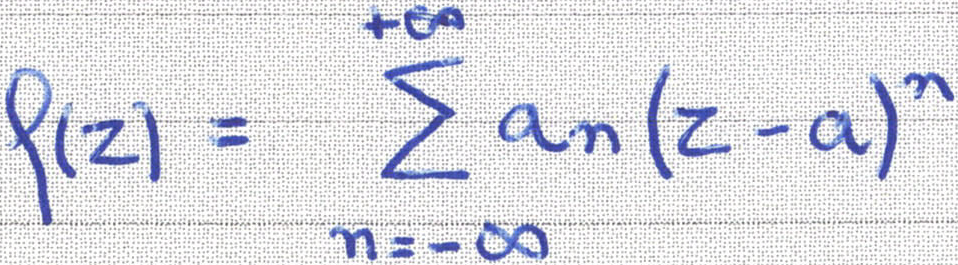 f(z) = \sum_{n=-\infty}^{+\infty} a_n (z-a)^n